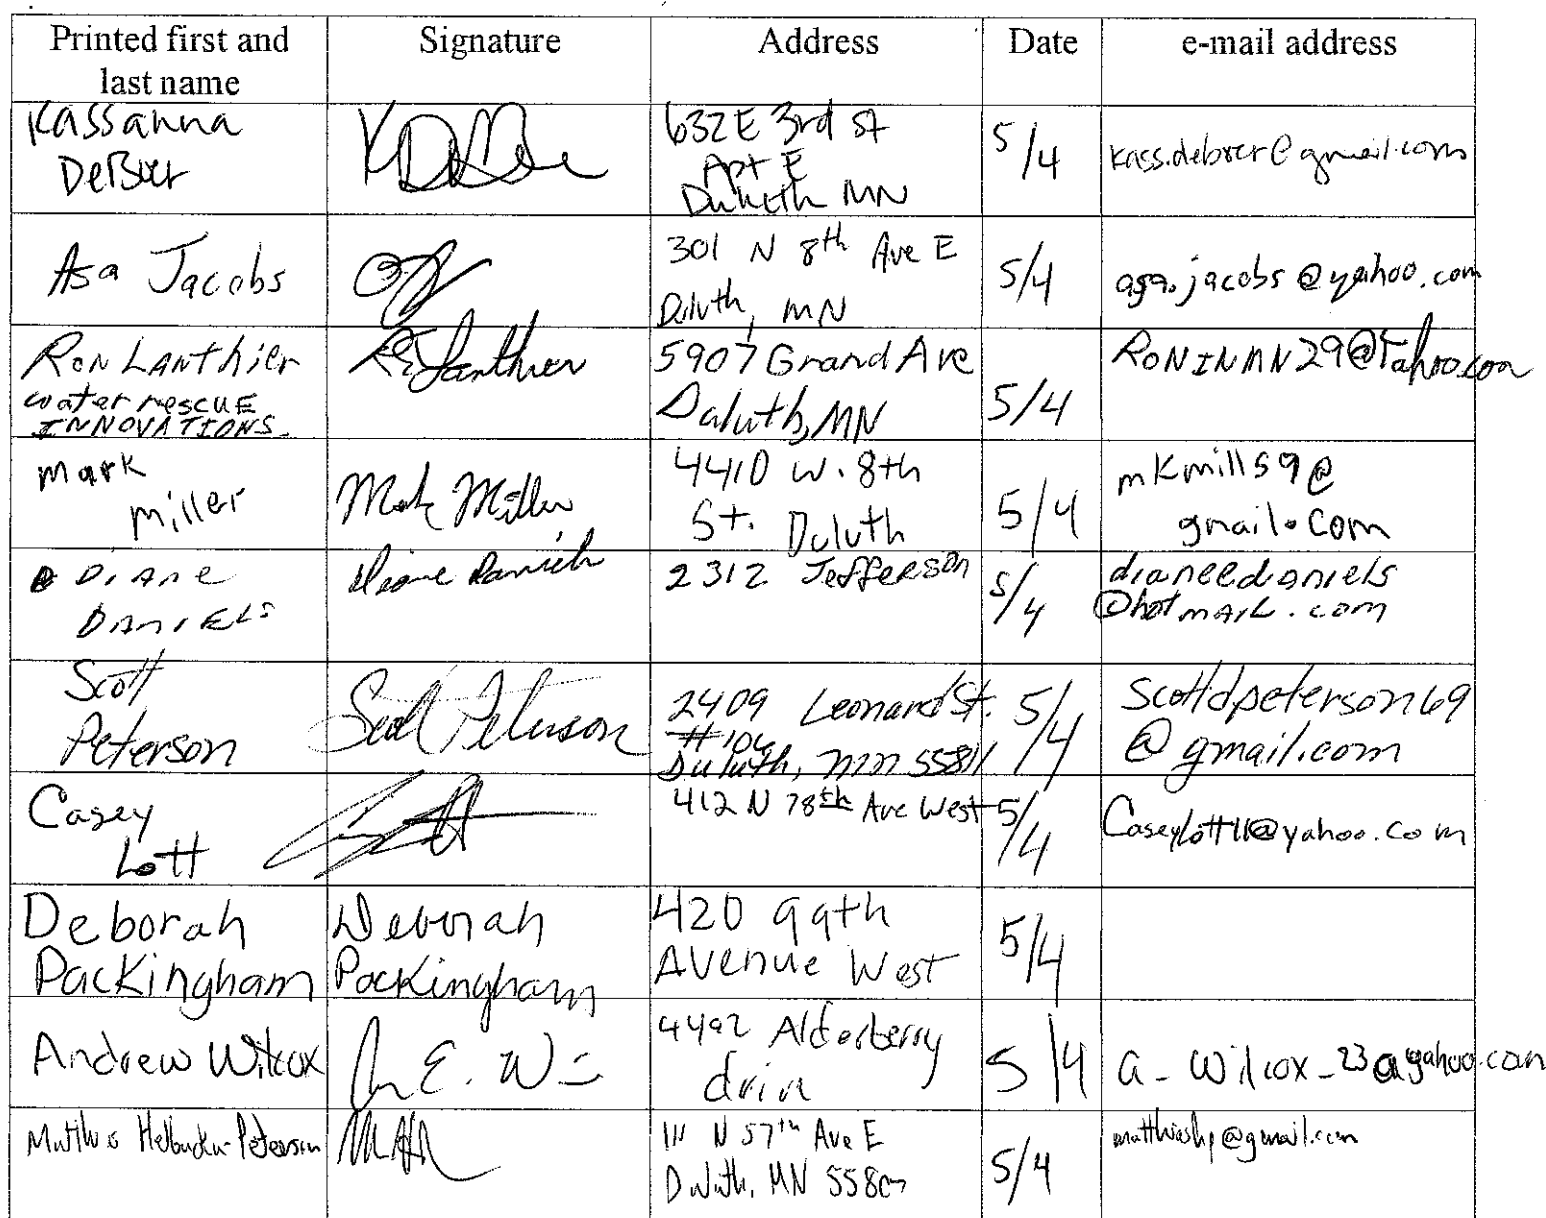 Printed first and last name Signature Address Date e-mail address
Kassanna DeBoer 632 E 3rd st Apt E Duluth MN 5/4 kass.deboer@gmail.com
Asa Jacobs 301 N 8th Ave E Duluth, MN 5/4 asa.jacobs@yahoo.com
Ron Lanthier water rescue INNOVATIONS Lanthier 5907 Grand Ave Duluth, MN 5/4 RONINMN29@Yahoo.com
Mark Miller Mark Miller 4410 W. 8th St. Duluth 5/4 mkmill59@gmail.com
Diane DANIELS Diane Daniels 2312 Jefferson 5/4 dianeedaniels@hotmail.com
Scott Peterson Scott Peterson 2409 Leonard St. Duluth, mn 55811 5/4 scottdpeterson69@gmail.com
Casey Lott 412 N 78th Ave West 5/4 Caseylott11@yahoo.com
Deborah Packingham Deborah Packingham 420 99th Avenue West 5/4
Andrew Wilcox 4492 Alderberry 5/4 a_wilcox_23@yahoo.com
111 N 57th Ave E Duluth, MN 5/4 matthiashp@gmail.com